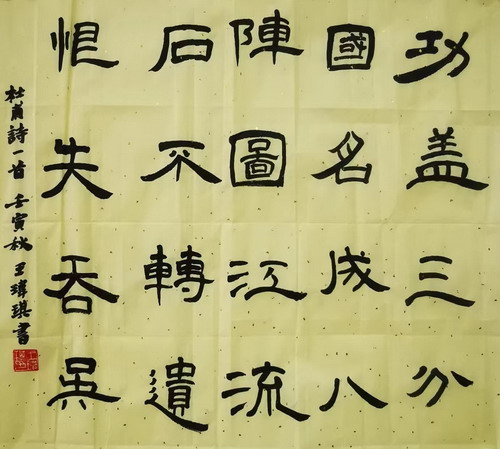 功盖三分
國名成八
陣圖江流
石不轉遺
恨失吞吳
杜甫詩一首 壬寅秋 王瑋琪書